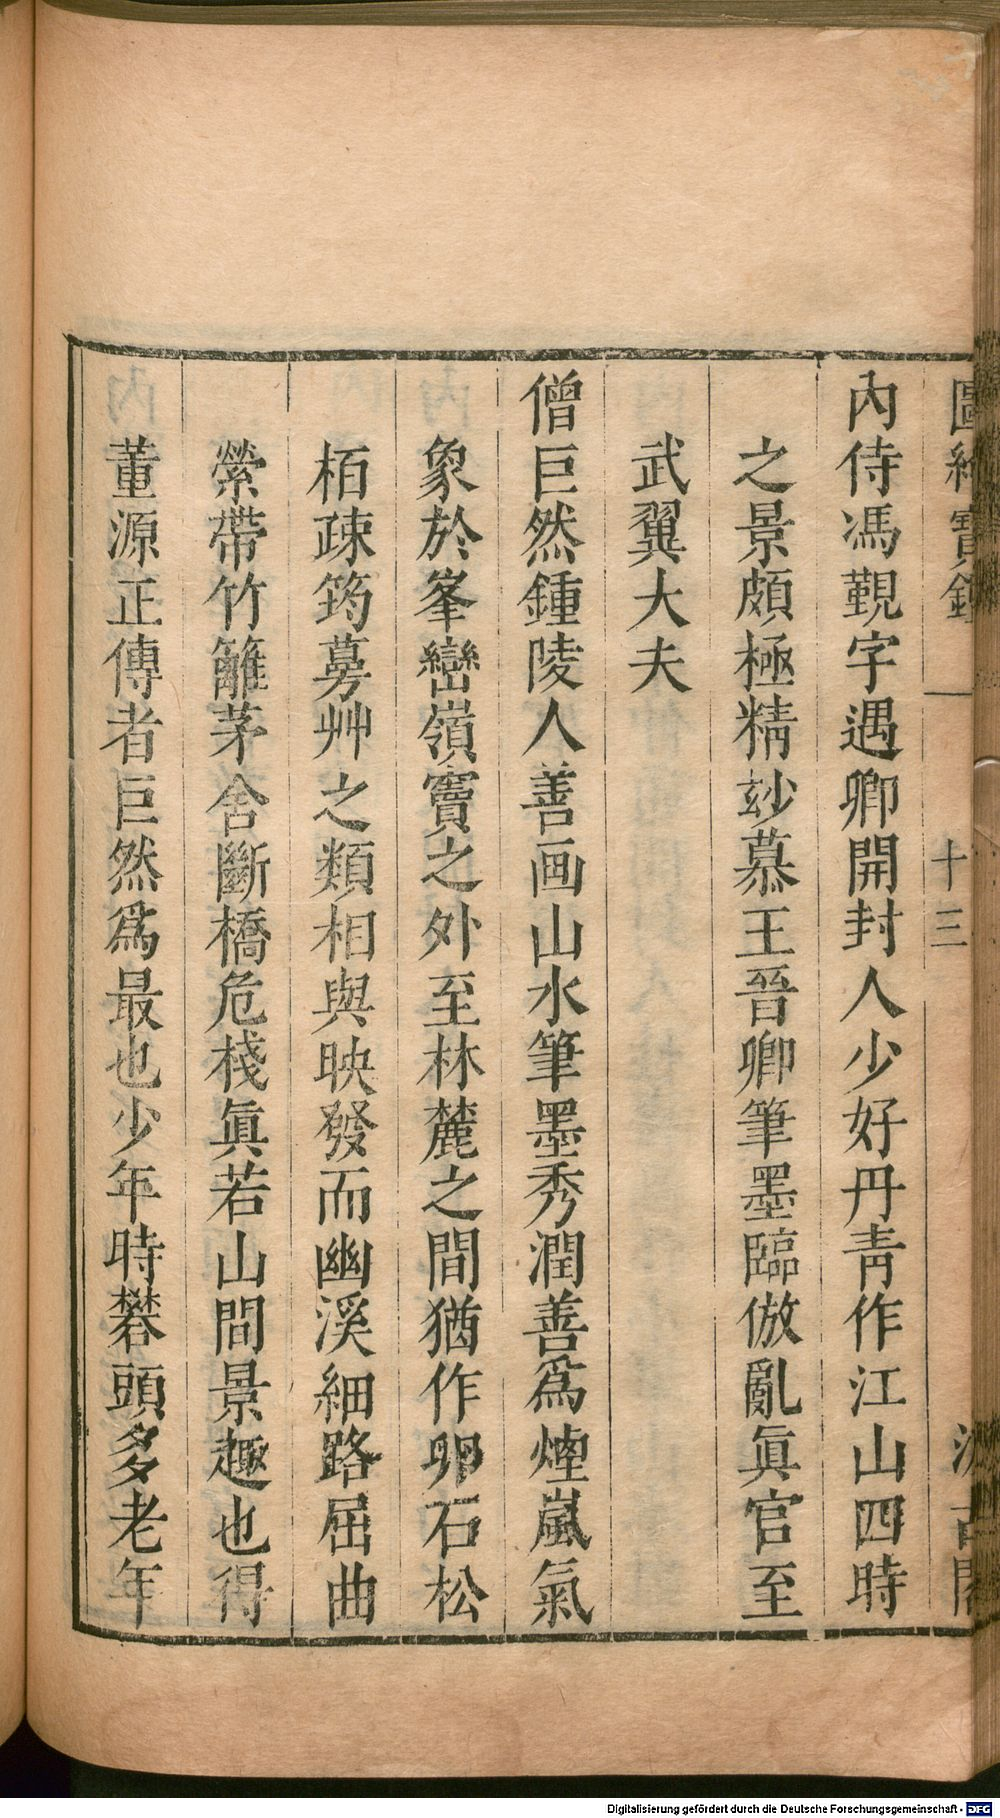 圖繪寶鑑 十三 汲古閣
內侍馮覲字遇卿開封人少好丹靑作江山四時
之景頗極精玅慕王晉卿筆墨臨倣亂眞官至
武翼大夫
僧巨然鍾陵人善画山水筆墨秀潤善爲煙嵐氣
象於峯巒嶺竇之外至林麓之間猶作卵石松
栢疎筠蒡艸之類相與映發而幽溪細路屈曲
縈帶竹籬茅舍斷橋危棧眞若山間景趣也得
董源正傳者巨然爲最也少年時礬頭多老年
Digitalisierung gefördert durch die Deutsche Forschungsgemeinschaft - DFG